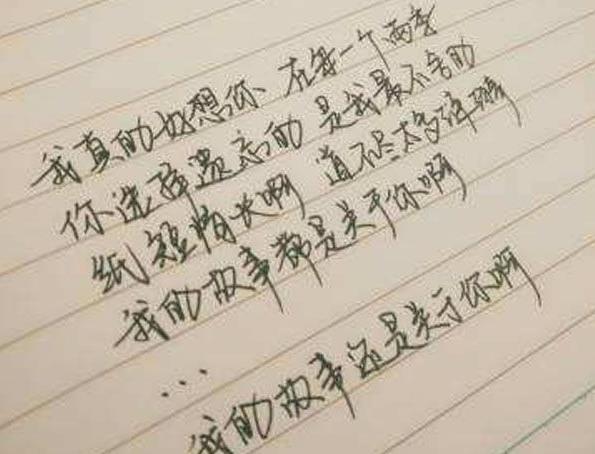 我真的好想你 在每一个雨季
你选择遗忘的 是我最不舍的
纸短情长啊 道不尽太多涟漪
我的故事都是关于你啊
...
我的故事还是关于你啊